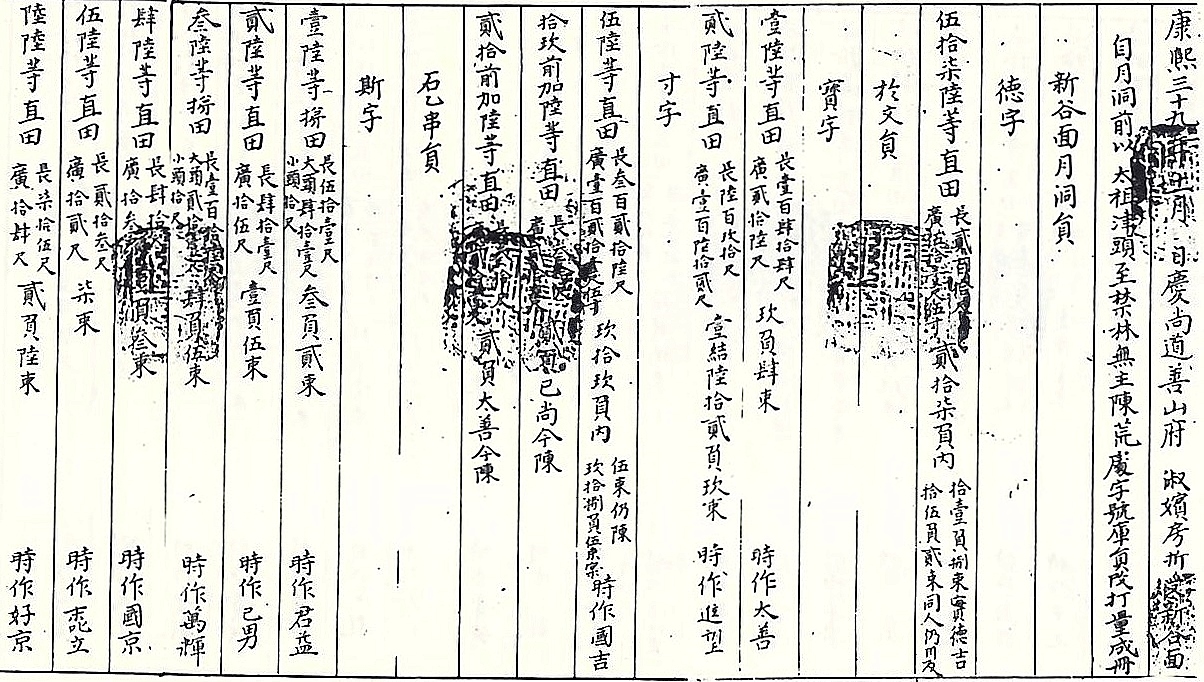 康熙三十九年十一月 日慶尚道善山府 淑嬪房折受新谷面
月洞前以太祖津頭至禁林無主陳荒處字號庫負改打量成冊
新谷面月洞員
德字
伍拾柒陸等直田 長貳百 廣 貳拾柒負內 拾壹負捌束實德吉
拾伍負貳束同人仍川反
於文員
寶字
壹陸等直田 長壹百肆拾肆尺 廣貳拾陸尺 玖負肆束 時作太善
貳陸等直田 長陸百玖拾尺 廣壹百陸拾貳尺 壹結陸拾貳負玖束 時作進望
寸字
伍陸等直田 長叁百貳拾陸尺 廣壹百貳拾 玖拾玖負內 伍束仍陳
玖拾捌負伍束實 時作國吉
拾玖前加陸等直田 已尚今陳
貳拾前加陸等直田 貳負太善今陳
石乙串員
斯字
壹陸等梯田 長伍拾壹尺 大頭肆拾壹尺 小頭拾尺 叁負貳束 時作君益
貳陸等直田 長肆拾壹尺 廣拾伍尺 壹負伍束 時作己男
叁陸等梯田 長壹百 大頭貳拾 小頭拾尺 肆負伍束 時作萬輝
肆陸等直田 長肆拾 廣拾叁 負叄束 時作國京
伍陸等直田 長貳拾叁尺 廣拾貳尺 柒束 時作 立
陸陸等直田 長柒拾伍尺 廣拾肆尺 貳負陸束 時作好京